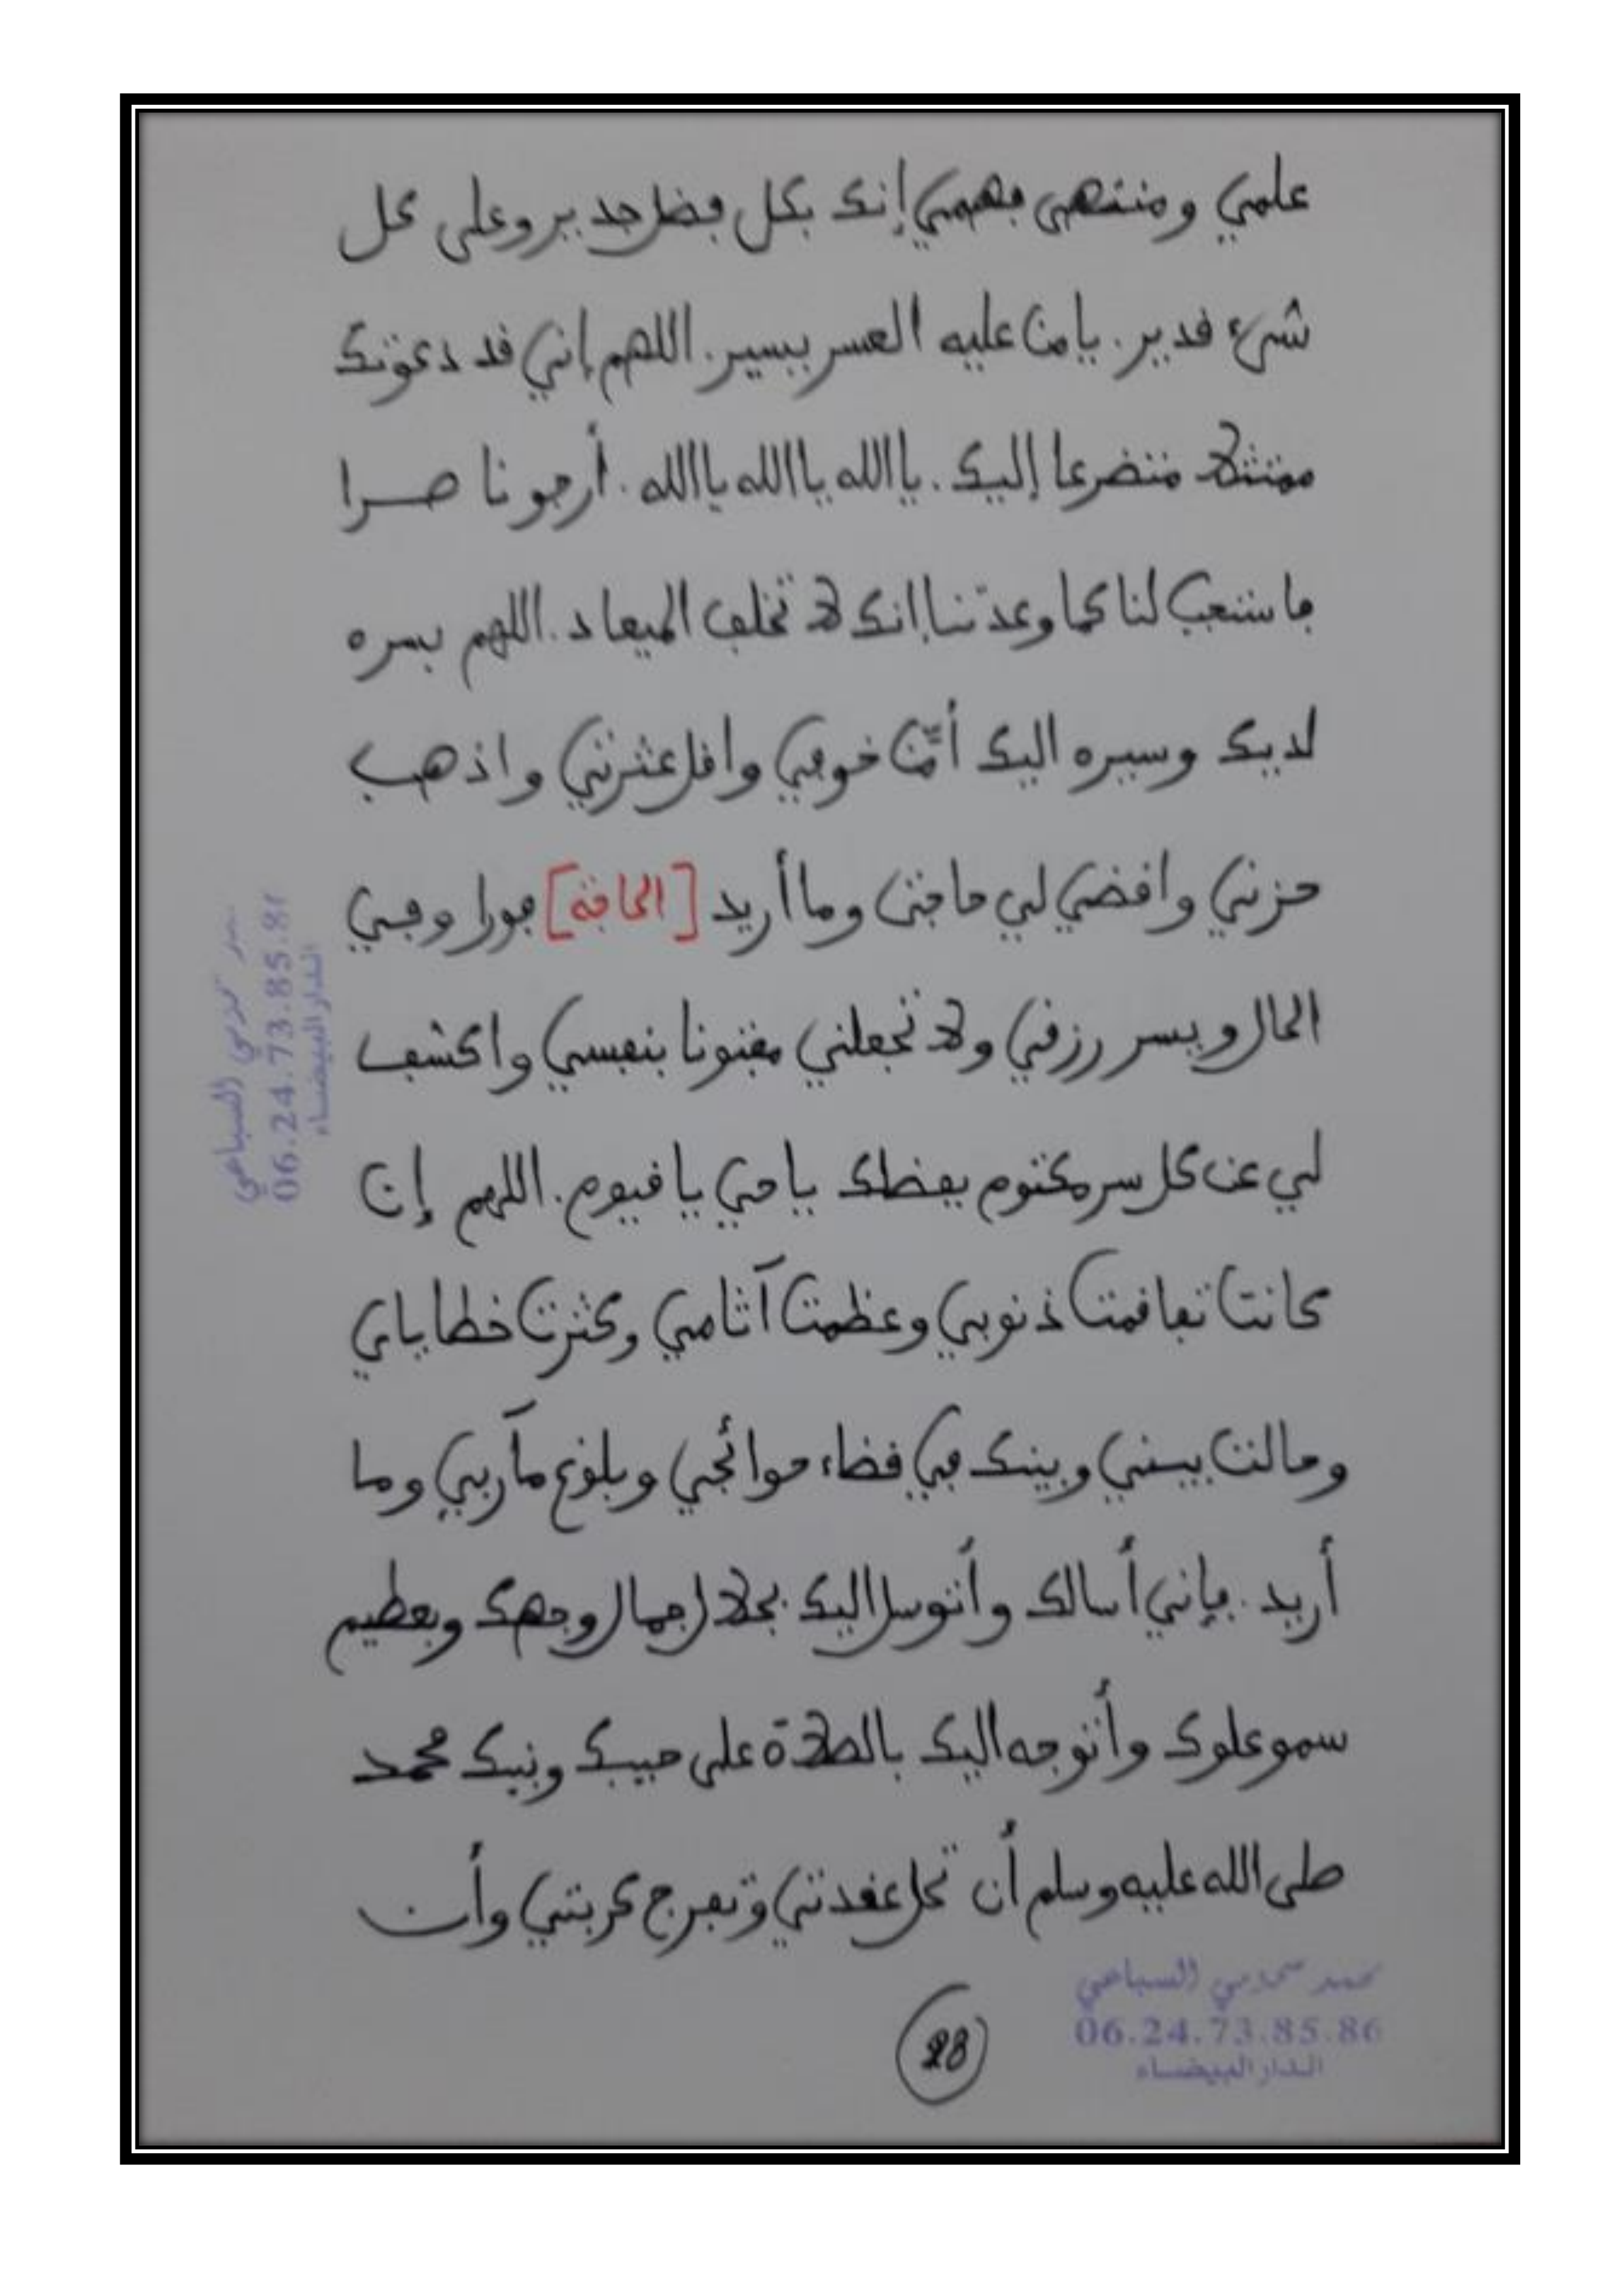 علمي ومنتهى فهمي إنك بكل فضل جدير وعلى كل
شيء قدير. يا من عليه العسر يسير. اللهم إني قد دعوتك
ممتثلا متضرعا إليك. يا الله يا الله يا الله. أرجو نا صرا
فاستجب لنا كما وعدتنا إنك لا تخلف الميعاد. اللهم بسره
لديك وسيره اليك أمّن خوفي واقل عثرتي واذهب
حزني واقضي لي حاجتي وما أريد [الحاجة] فورا وفي
الحال ويسر رزقي ولا تجعلني مفتونا بنفسي واكشف
لي عن كل سر مكتوم بفضلك يا حي يا قيوم. اللهم إن
كانت تفاقمت ذنوبي وعظمت آثامي وكثرت خطاياي
وحالت بيني وبينك في قضاء حوائجي وبلوغ مآربي وما
أريد. فإني أسالك وأتوسل اليك بجلال جمال وجهك وبعظيم
سمو علوك وأتوجه اليك بالصلاة على حبيبك ونبيك محمد
صلى الله عليه وسلم أن تحل عقدتي وتفرج كربتي وأن
28
السباعي
06.24.73.85.86
الدار البيضاء
السباعي
06.24.73.85.8
الدار البيضاء